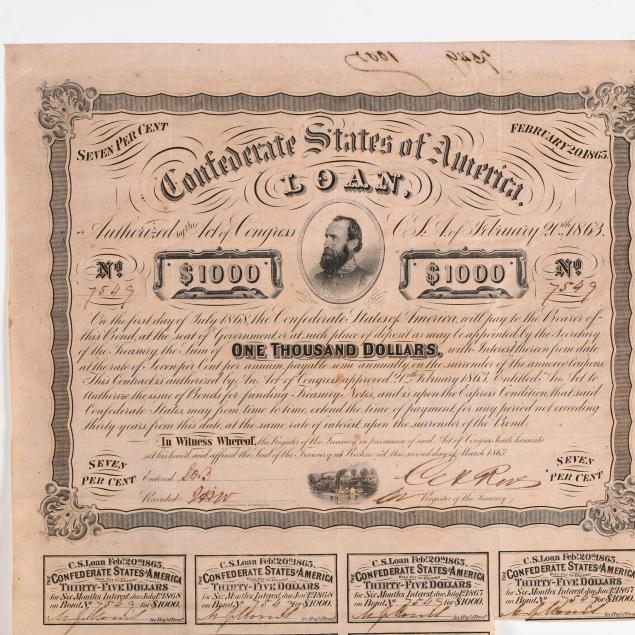 7549 1007
SEVEN PER CENT
FEBRUARY 20, 1863.
Confederate States of America,
LOAN,
Authorized by the Act of Congress C.S.A. of February 20th 1863.
No No
$1000 $1000
7549 7549
On the first day of July 1868, the Confederate States of America, will pay to the Bearer of
this Bond, at the seat of Government, or at such place of deposit as may be appointed by the Secretary
of the Treasury, the Sum of ONE THOUSAND DOLLARS, with Interest thereon from date,
at the rate of Seven per Cent per annum, payable semi annually, on the surrender of the annexed Coupons.
This Contract is authorized by An Act of Congress approved 20th February 1863, Entitled, An Act to
Authorize the issue of Bonds for funding Treasury Notes, and is upon the Express Condition, that said
Confederate States may from time to time, extend the time of payment for any period not exceeding
thirty years from this date, at the same rate of interest upon the surrender of the Bond.
In Witness Whereof, the Register of the Treasury in pursuance of said Act of Congress hath hereunto
set his hand and affixed the Seal of the Treasury at Richmond, this second day of March 1863.
SEVEN PER CENT
SEVEN PER CENT
Entered
Recorded
Register of the Treasury
C.S. Loan Feby. 20th 1863. C.S. Loan Feby. 20th 1863. C.S. Loan Feby. 20th 1863. C.S. Loan Feby. 20th 1863.
THE CONFEDERATE STATES OF AMERICA THE CONFEDERATE STATES OF AMERICA THE CONFEDERATE STATES OF AMERICA THE CONFEDERATE STATES OF AMERICA
WILL PAY TO BEARER WILL PAY TO BEARER WILL PAY TO BEARER WILL PAY TO BEARER
THIRTY-FIVE DOLLARS THIRTY-FIVE DOLLARS THIRTY-FIVE DOLLARS THIRTY-FIVE DOLLARS
for Six Months Interest, due July 1st 1868 for Six Months Interest, due Jany 1st 1868 for Six Months Interest, due July 1st 1867 for Six Months Interest, due Jany 1st 1867
on Bond, No 7549 for $1000. on Bond, No 7549 for $1000. on Bond, No 7549 for $1000. on Bond, No 7549 for $1000.
for Reg'r of Treas'y for Reg'r of Treas'y for Reg'r of Treas'y for Reg'r of Treas'y